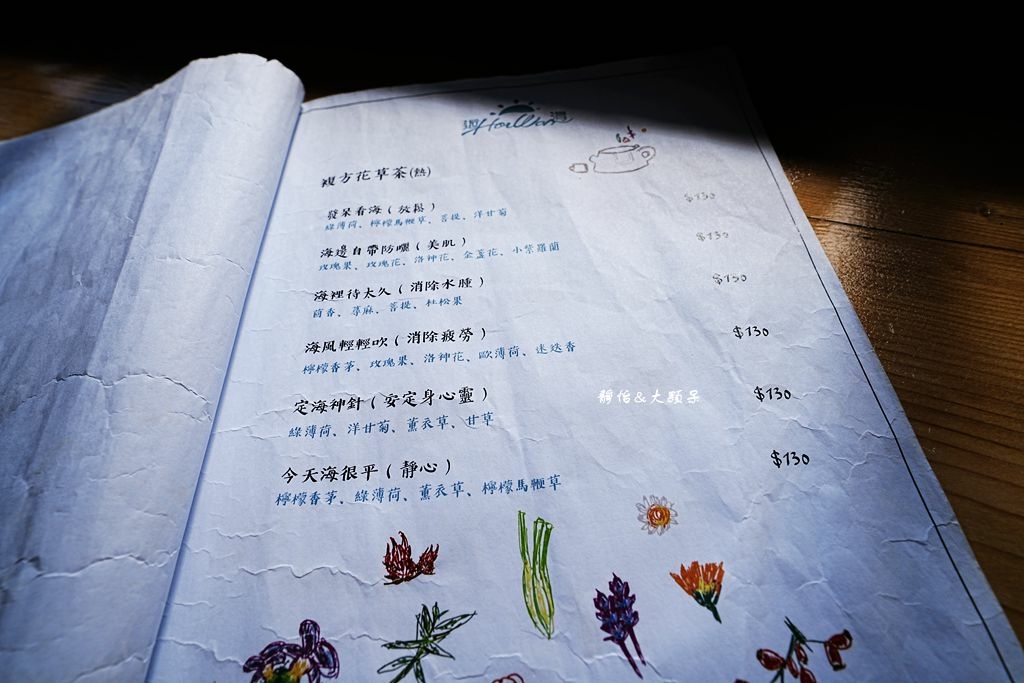 複方花草茶(熱)
發呆看海(放鬆) $130
綠薄荷、檸檬馬鞭草、菩提、洋甘菊
海邊自帶防曬(美肌) $130
玫瑰果、玫瑰花、洛神花、金盞花、小紫羅蘭
海裡待太久(消除水腫) $130
茴香、蕁麻、菩提、杜松果
海風輕輕吹(消除疲勞) $130
檸檬香茅、玫瑰果、洛神花、歐薄荷、迷迭香
定海神針(安定身心靈) $130
綠薄荷、洋甘菊、薰衣草、甘草
靜怡&大顆呆
今天海很平(靜心) $130
檸檬香茅、綠薄荷、薰衣草、檸檬馬鞭草